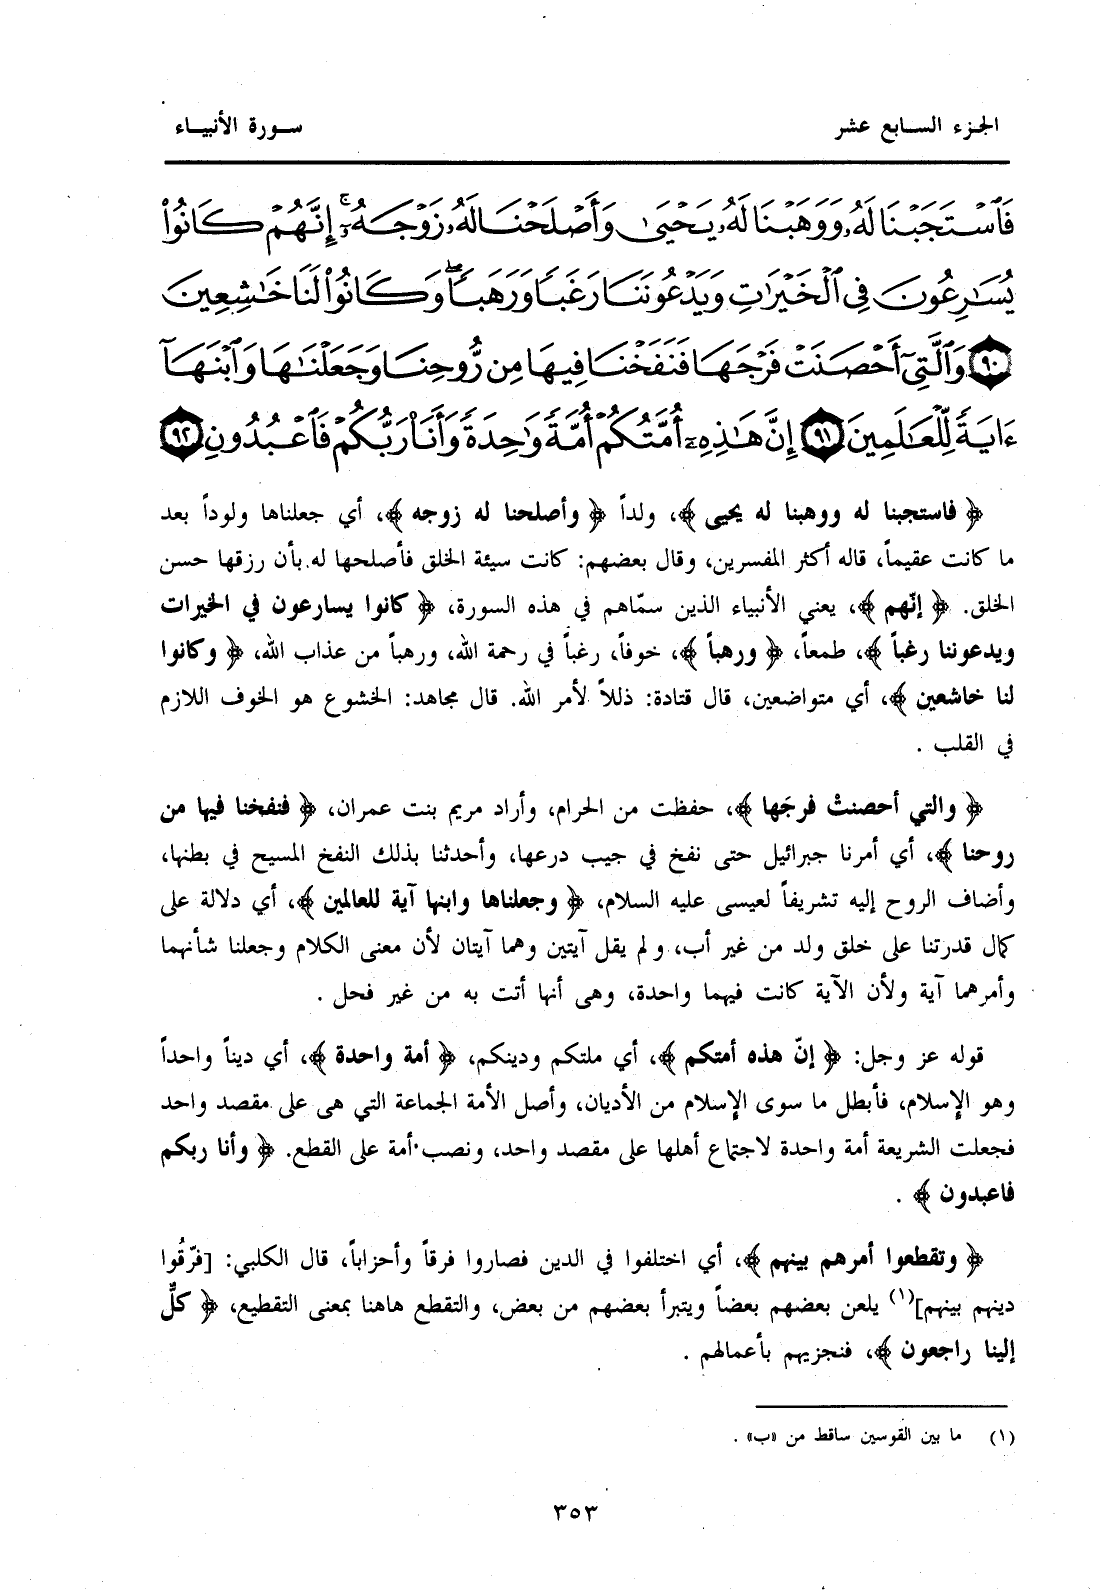 الجزء السابع عشر
سورة الأنبياء
فَٱسْتَجَبْنَا لَهُۥ وَوَهَبْنَا لَهُۥ يَحْيَىٰ وَأَصْلَحْنَا لَهُۥ زَوْجَهُۥٓ ۚ إِنَّهُمْ كَانُوا۟
يُسَٰرِعُونَ فِى ٱلْخَيْرَٰتِ وَيَدْعُونَنَا رَغَبًا وَرَهَبًا ۖ وَكَانُوا۟ لَنَا خَٰشِعِينَ
٩٠ وَٱلَّتِىٓ أَحْصَنَتْ فَرْجَهَا فَنَفَخْنَا فِيهَا مِن رُّوحِنَا وَجَعَلْنَٰهَا وَٱبْنَهَآ
ءَايَةً لِّلْعَٰلَمِينَ ٩١ إِنَّ هَٰذِهِۦٓ أُمَّتُكُمْ أُمَّةً وَٰحِدَةً وَأَنَا۠ رَبُّكُمْ فَٱعْبُدُونِ ٩٢
﴿ فاستجبنا له ووهبنا له يحيى ﴾، ولداً ﴿ وأصلحنا له زوجه ﴾، أي جعلناها ولوداً بعد
ما كانت عقيماً، قاله أكثر المفسرين، وقال بعضهم: كانت سيئة الخلق فأصلحها له بأن رزقها حسن
الخلق. ﴿ إنّهم ﴾، يعني الأنبياء الذين سمّاهم في هذه السورة، ﴿ كانوا يسارعون في الخيرات
ويدعوننا رغباً ﴾، طمعاً، ﴿ ورهباً ﴾، خوفاً، رغباً في رحمة الله، ورهباً من عذاب الله، ﴿ وكانوا
لنا خاشعين ﴾، أي متواضعين، قال قتادة: ذللاً لأمر الله. قال مجاهد: الخشوع هو الخوف اللازم
في القلب .
﴿ والتي أحصنتْ فرجَها ﴾، حفظت من الحرام، وأراد مريم بنت عمران، ﴿ فنفخنا فيها من
روحنا ﴾، أي أمرنا جبرائيل حتى نفخ في جيب درعها، وأحدثنا بذلك النفخ المسيح في بطنها،
وأضاف الروح إليه تشريفاً لعيسى عليه السلام، ﴿ وجعلناها وابنها آية للعالمين ﴾، أي دلالة على
كمال قدرتنا على خلق ولد من غير أب، ولم يقل آيتين وهما آيتان لأن معنى الكلام وجعلنا شأنهما
وأمرهما آية ولأن الآية كانت فيهما واحدة، وهى أنها أتت به من غير فحل .
قوله عز وجل: ﴿ إنّ هذه أمتكم ﴾، أي ملتكم ودينكم، ﴿ أمة واحدة ﴾، أي ديناً واحداً
وهو الإسلام، فأبطل ما سوى الإسلام من الأديان، وأصل الأمة الجماعة التي هى على مقصد واحد
فجعلت الشريعة أمة واحدة لاجتماع أهلها على مقصد واحد، ونصب أمة على القطع. ﴿ وأنا ربكم
فاعبدون ﴾ .
﴿ وتقطعوا أمرهم بينهم ﴾، أي اختلفوا في الدين فصاروا فرقاً وأحزاباً، قال الكلبي: [فرّقُوا
دينهم بينهم](١) يلعن بعضهم بعضاً ويتبرأ بعضهم من بعض، والتقطع هاهنا بمعنى التقطيع، ﴿ كلٌّ
إلينا راجعون ﴾، فنجزيهم بأعمالهم .
(١) ما بين القوسين ساقط من «ب» .
٣٥٣